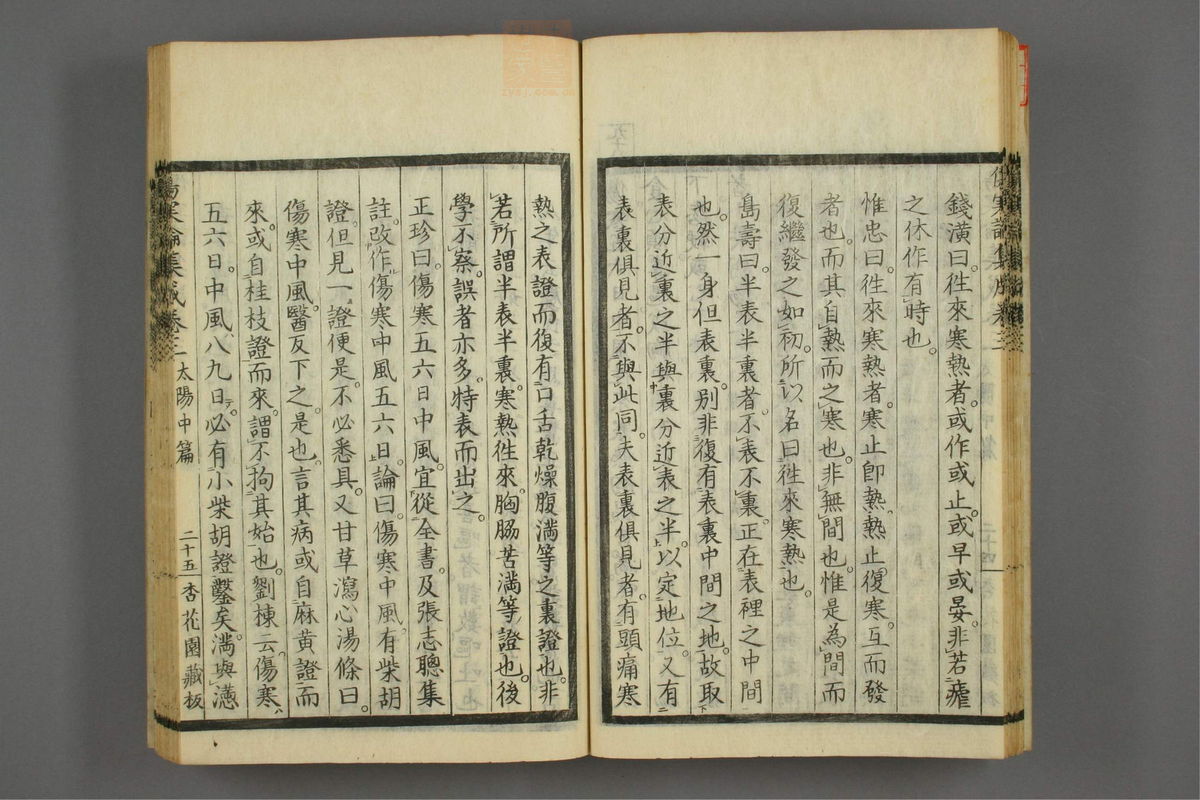 錢潢曰。徃來寒熱者。或作或止。或早或晏。非若瘧
之休作有時也。
惟忠曰。徃來寒熱者。寒止即熱。熱止復寒。互而發
者也。而其自熱而之寒也。非無間也。惟是為間而
復繼發之如初。所以名曰徃來寒熱也。
島壽曰。半表半裏者。不表不裏。正在表裡之中間
也。然一身但表裏。別非復有表裏中間之地。故取
表分近裏之半與裏分近表之半。以定地位。又有
表裏俱見者。不與此同。夫表裏俱見者。有頭痛寒
熱之表證而復有口舌乾燥腹滿等之裏證也。非
若所謂半表半裏。寒熱徃來。胸脇苦滿等證也。後
學不察。誤者亦多。特表而出之。
正珍曰。傷寒五六日中風。宜從全書。及張志聰集
註。改作傷寒中風五六日。論曰。傷寒中風。有柴胡
證。但見一證便是。不必悉具。又甘草瀉心湯條曰。
傷寒中風。醫反下之。是也。言其病或自麻黄證而
來。或自桂枝證而來。謂不拘其始也。劉棟云。傷寒
五六日。中風八九日。必有小柴胡證。鑿矣。滿與懣
傷寒論集成卷三 太陽中篇 二十五 杏花園藏板
zysj.com.cn